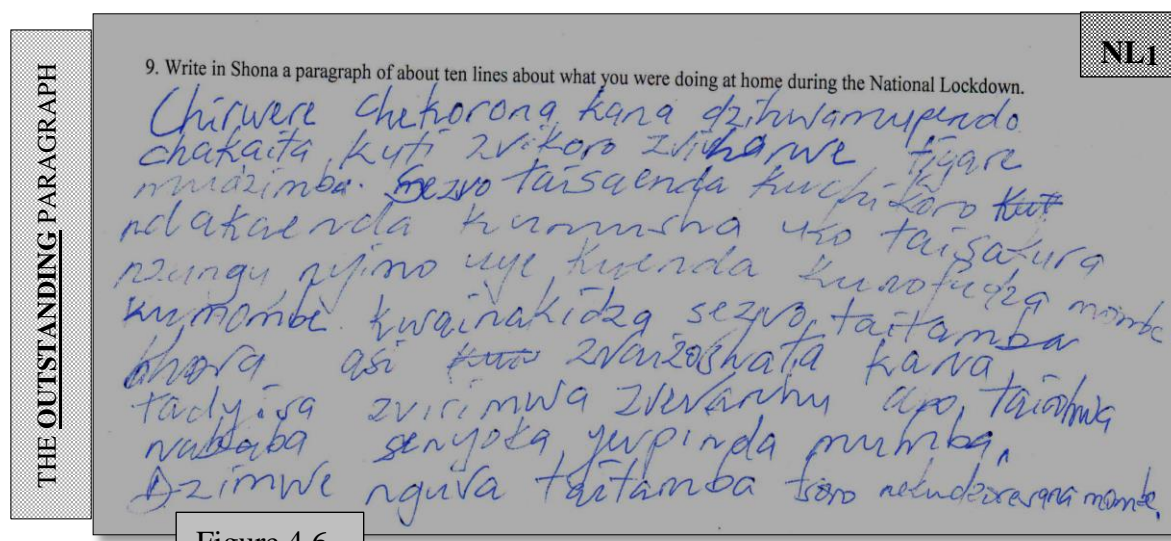 THE OUTSTANDING PARAGRAPH
NL1
9. Write in Shona a paragraph of about ten lines about what you were doing at home during the National Lockdown.
Chirwere chekorona kana dzihwamupendo
chakaita kuti zvikoro zvivharwe tigare
mudzimba. Sezvo taisaenda kuchikoro kut
ndakaenda kumusha uko taisakura
nzungu nyimo uye kuenda kunofudza mombe
kumombe kwainakidza sezvo taitamba
bhora asi zvaizoshata kana
tadyisa zvirimwa zvevanhu apo tairohwa
nababa senyoka yapinda mumba.
Dzimwe nguva taitamba tsoro nekudzorerana mombe.
Figure 4.6